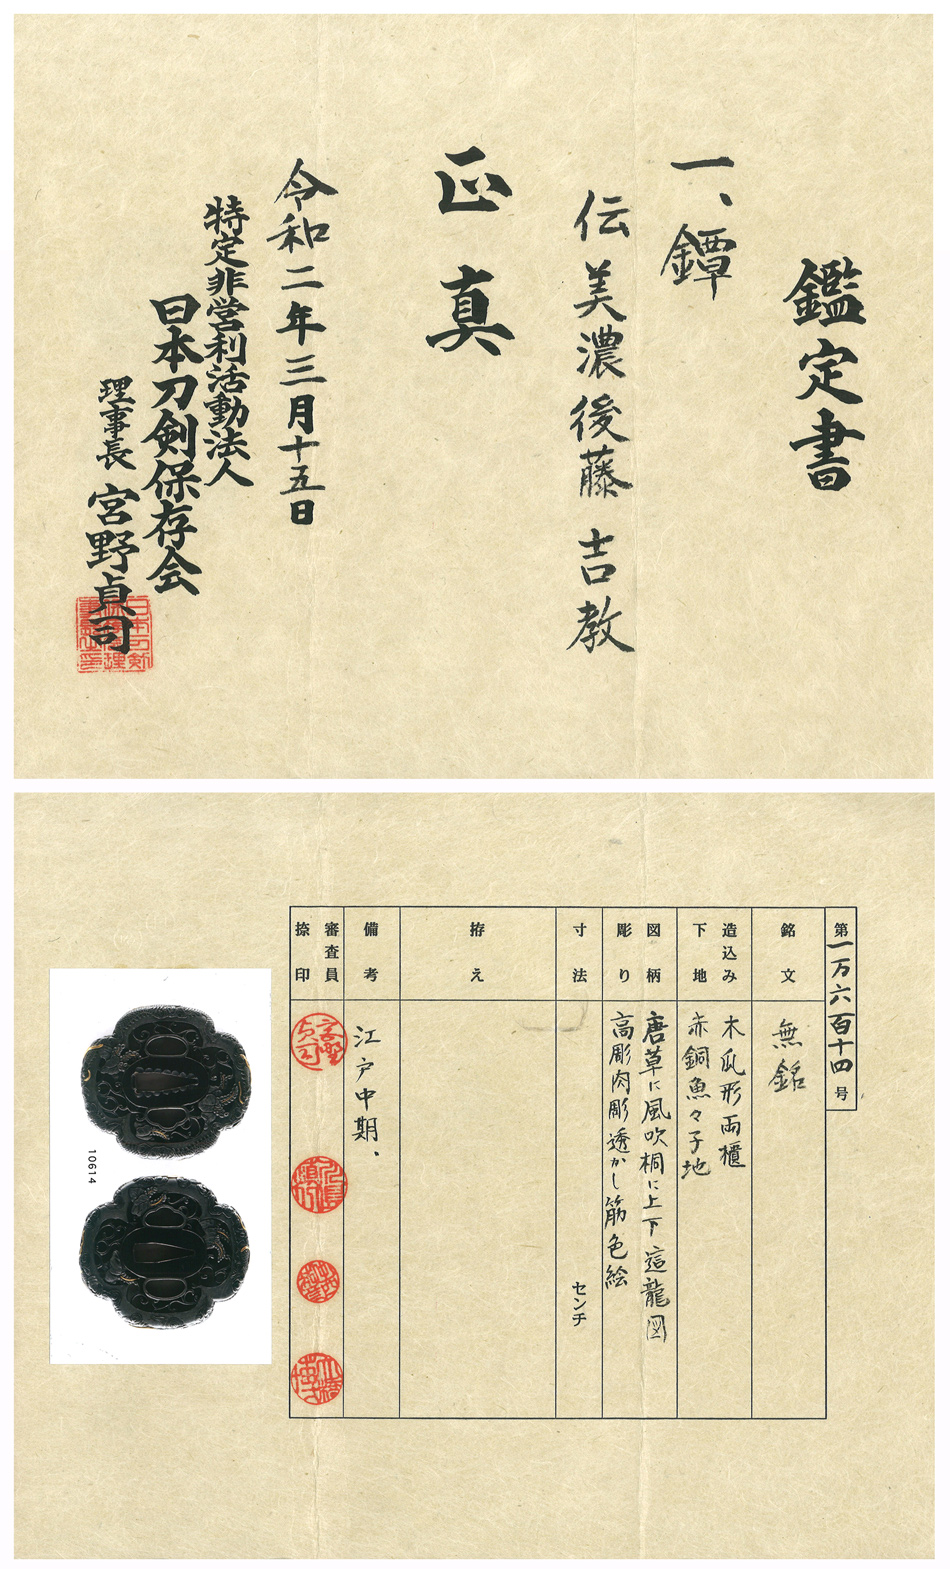 鑑定書
一、鐔
伝 美濃後藤 吉教
正真
令和二年三月十五日
特定非営利活動法人
日本刀剣保存会
理事長 宮野貞司
第一万六百十四号
銘文
無銘
造込み
木瓜形両櫃
下地
赤銅魚々子地
図柄
唐草に風吹桐に上下這龍図
彫り
高彫肉彫透かし筋色絵
寸法
センチ
拵え
備考
江戸中期、
審査員
捺印
10614